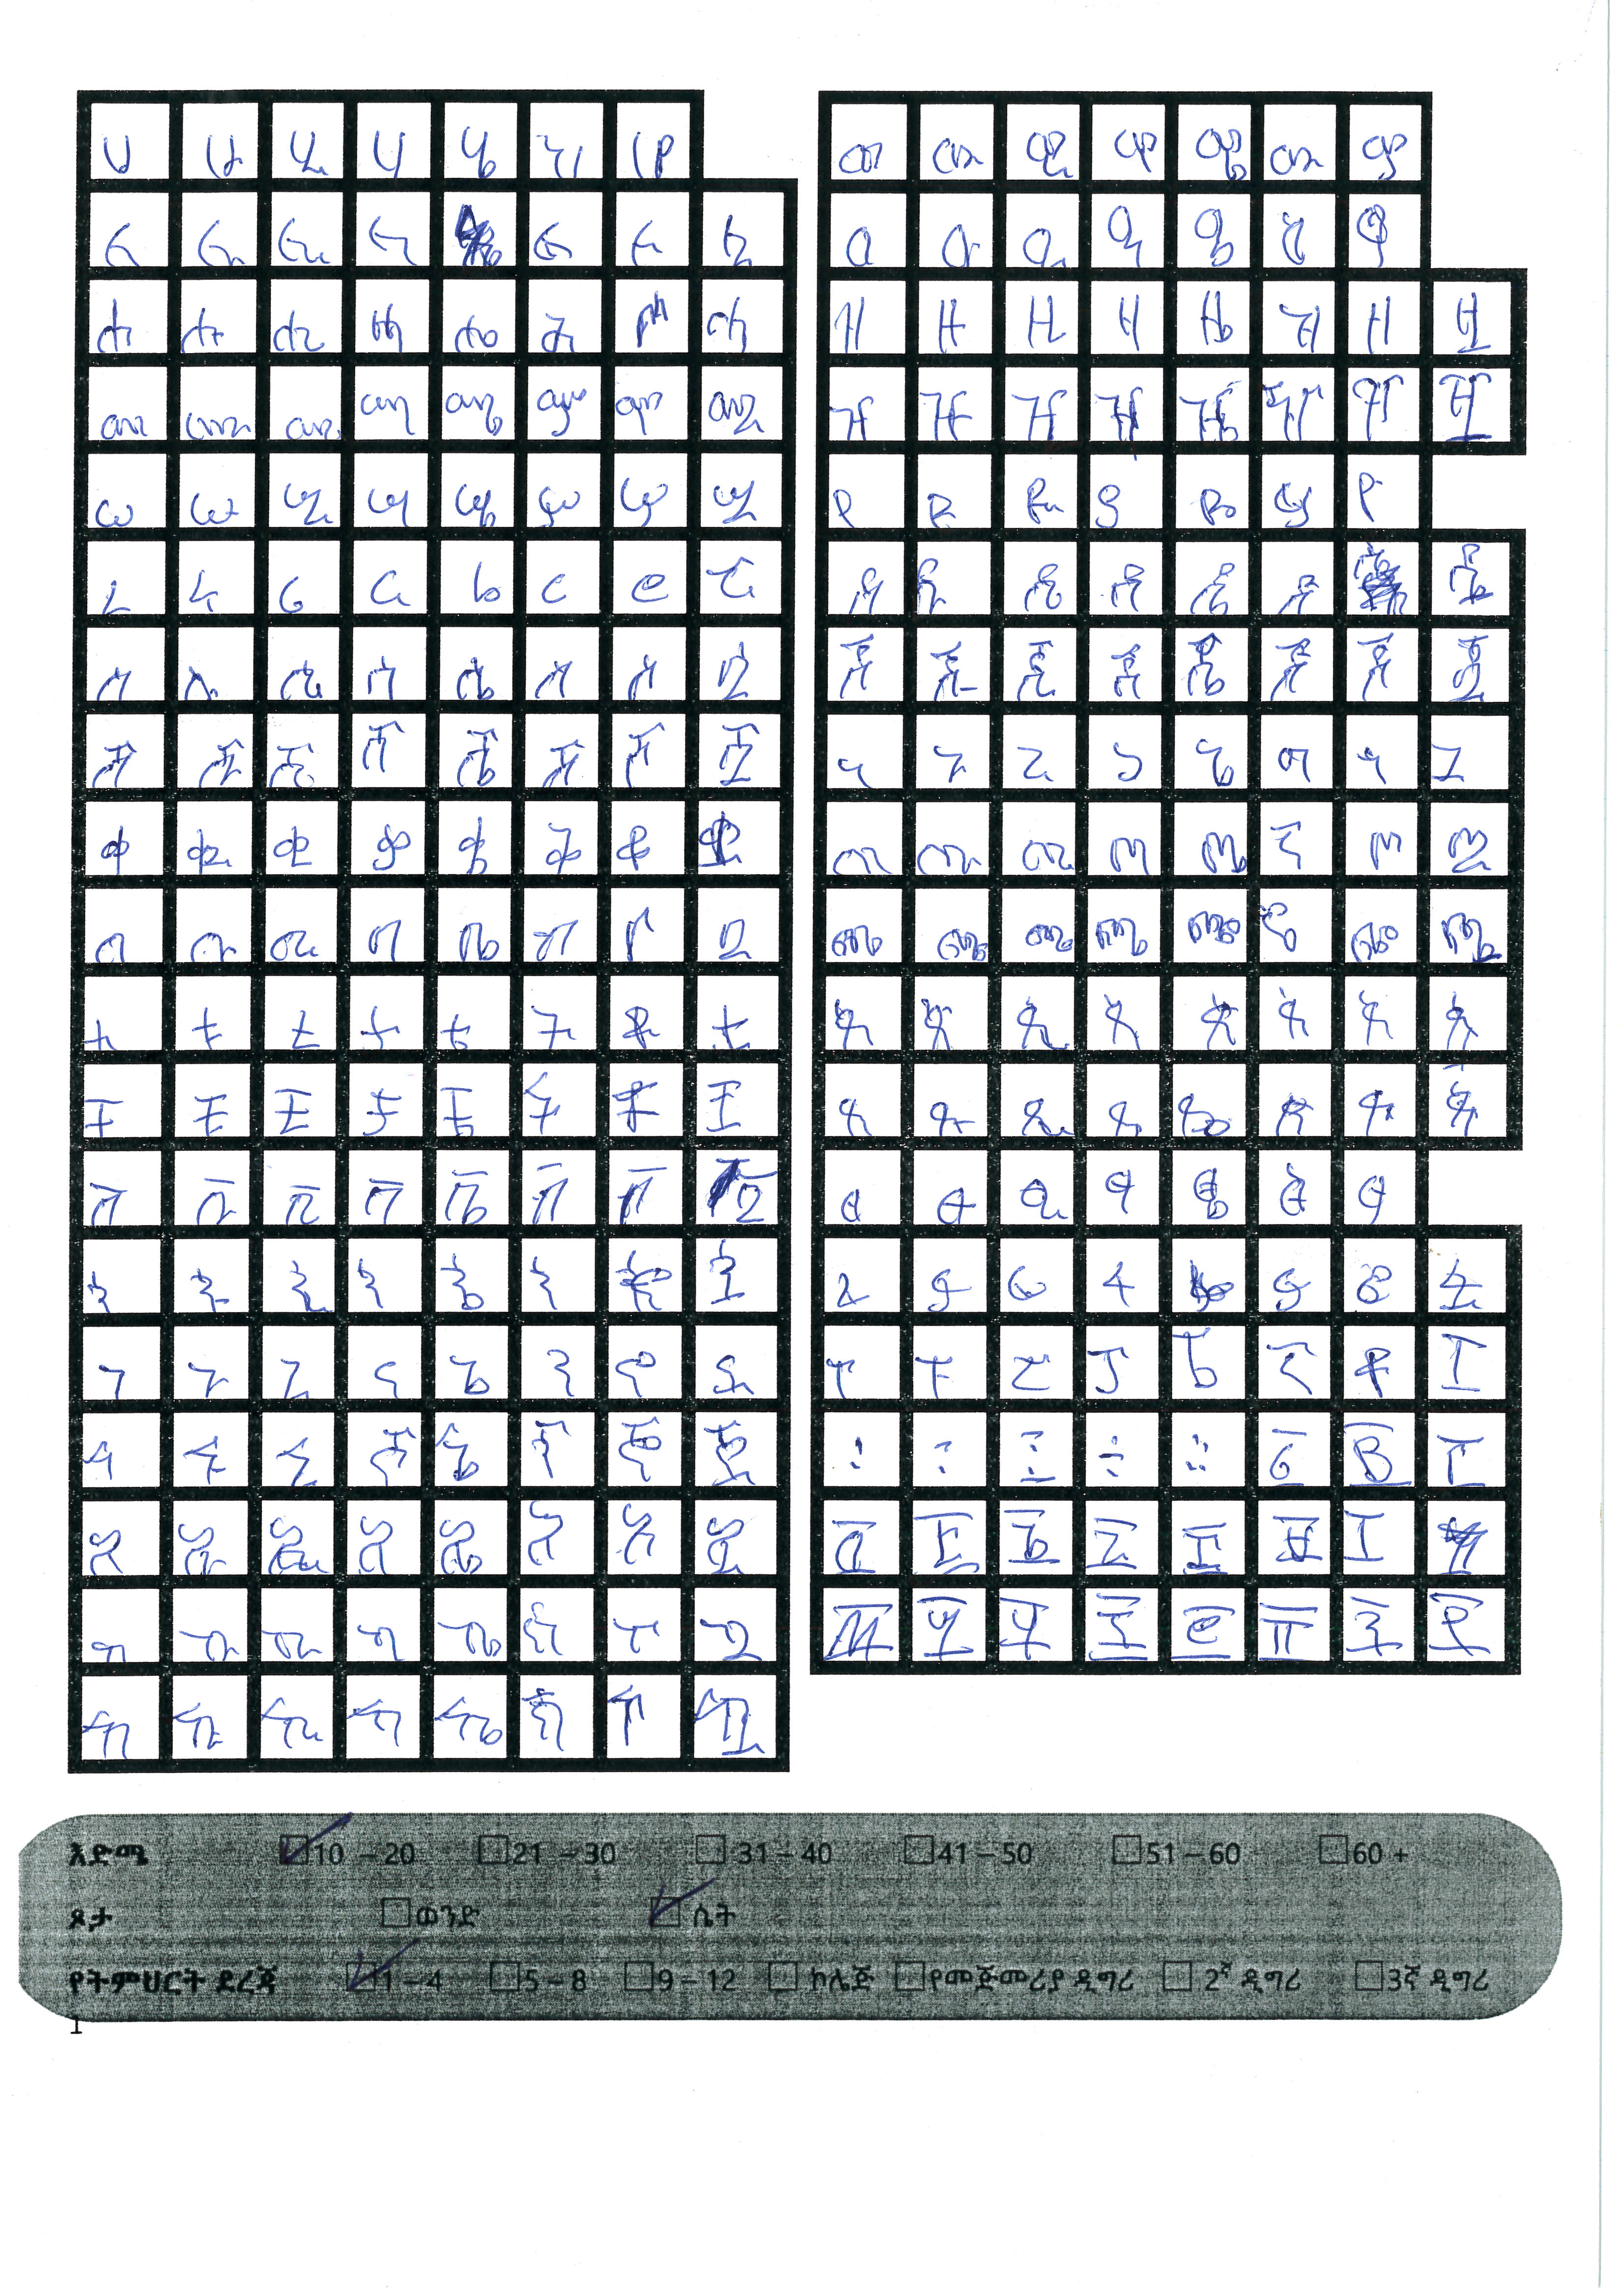 ሀ ሁ ሂ ሃ ሄ ህ ሆ
ለ ሉ ሊ ላ ል ሎ ሏ
ሐ ሑ ሒ ሓ ሔ ሕ ሖ ሗ
መ ሙ ሚ ማ ሜ ም ሞ ሟ
ሠ ሡ ሢ ሣ ሤ ሥ ሦ ሧ
ረ ሩ ሪ ራ ሬ ር ሮ ሯ
ሰ ሱ ሲ ሳ ሴ ስ ሶ ሷ
ሸ ሹ ሺ ሻ ሼ ሽ ሾ ሿ
ቀ ቁ ቂ ቃ ቄ ቅ ቆ ቋ
በ ቡ ቢ ባ ቤ ብ ቦ ቧ
ተ ቱ ቲ ታ ቴ ት ቶ ቷ
ቸ ቹ ቺ ቻ ቼ ች ቾ ቿ
ኀ ኁ ኂ ኃ ኄ ኅ ኆ ኋ
ነ ኑ ኒ ና ኔ ን ኖ ኗ
ኘ ኙ ኚ ኛ ኜ ኝ ኞ ኟ
አ ኡ ኢ ኣ ኤ እ ኦ ኧ
ከ ኩ ኪ ካ ኬ ክ ኮ ኳ
ኸ ኹ ኺ ኻ ኼ ኽ ኾ
ወ ዉ ዊ ዋ ዌ ው ዎ
ዐ ዑ ዒ ዓ ዔ ዕ ዖ
ዘ ዙ ዚ ዛ ዜ ዝ ዞ ዟ
ዠ ዡ ዢ ዣ ዤ ዥ ዦ ዧ
የ ዩ ዪ ያ ዬ ይ ዮ
ደ ዱ ዲ ዳ ዴ ድ ዷ
ጀ ጁ ጂ ጃ ጄ ጅ ጆ ጇ
ገ ጉ ጊ ጋ ጌ ግ ጎ ጓ
ጠ ጡ ጢ ጣ ጤ ጥ ጦ ጧ
ጨ ጩ ጪ ጫ ጬ ጭ ጮ ጯ
ጰ ጱ ጲ ጳ ጴ ጵ ጶ ጷ
ጸ ጹ ጺ ጻ ጼ ጽ ጾ ጿ
ፀ ፁ ፂ ፃ ፄ ፅ ፆ
ፈ ፉ ፊ ፋ ፍ ፎ ፏ
ፐ ፑ ፒ ፓ ፔ ፕ ፖ ፗ
፩ ፪ ፫
፬ ፭ ፮ ፯ ፰ ፱ ፲
፴ ፵ ፶ ፷ ፸ ፹ ፺ ፻
እድሜ 10 – 20 21 – 30 31 – 40 41 – 50 51 – 60 60 +
ጾታ ወንድ ሴት
የትምህርት ደረጃ 1 – 4 5 – 8 9 – 12 ኮሌጅ የመጀመሪያ ዲግሪ 2ኛ ዲግሪ 3ኛ ዲግሪ
1